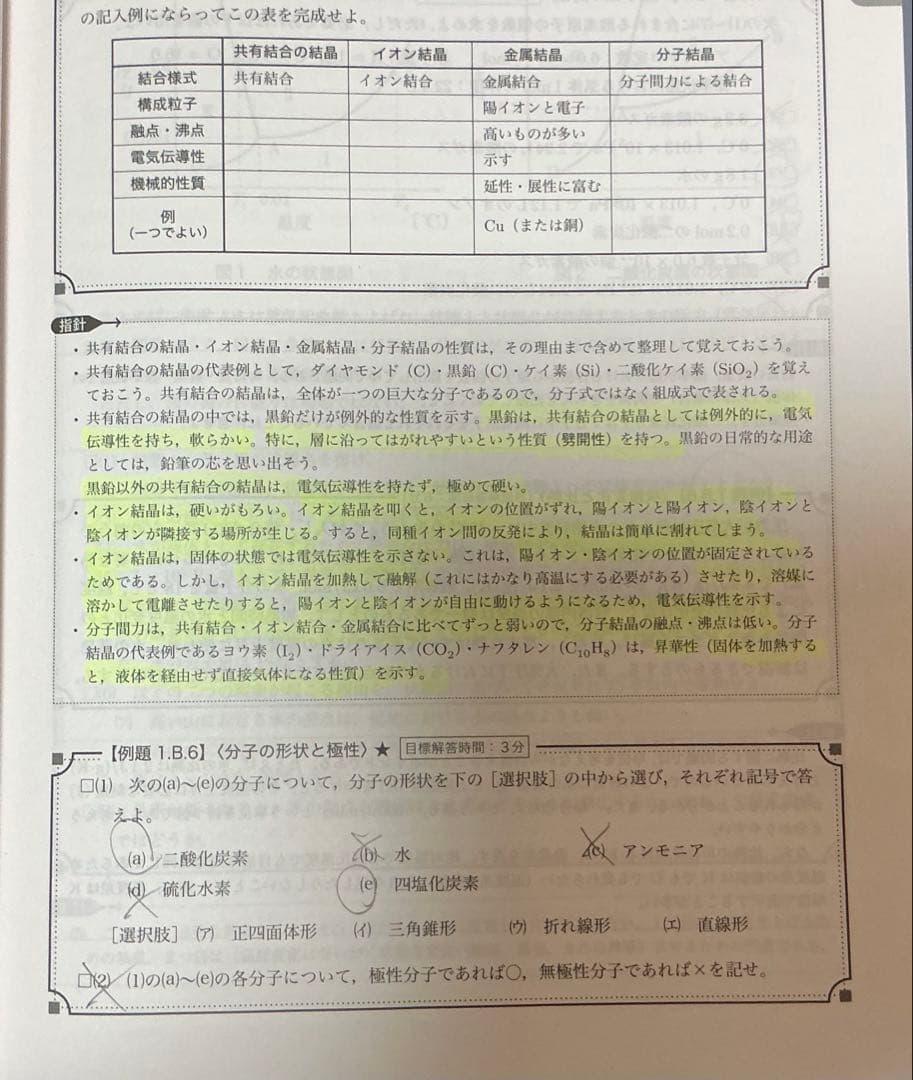 の記入例にならってこの表を完成せよ。
共有結合の結晶 イオン結晶 金属結晶 分子結晶
結合様式 共有結合 イオン結合 金属結合 分子間力による結合
構成粒子 陽イオンと電子
融点・沸点 高いものが多い
電気伝導性 示す
機械的性質 延性・展性に富む
例
(一つでよい) Cu(または銅)
指針
・共有結合の結晶・イオン結晶・金属結晶・分子結晶の性質は,その理由まで含めて整理して覚えておこう。
・共有結合の結晶の代表例として,ダイヤモンド(C)・黒鉛(C)・ケイ素(Si)・二酸化ケイ素(SiO₂)を覚え
ておこう。共有結合の結晶は,全体が一つの巨大な分子であるので,分子式ではなく組成式で表される。
・共有結合の結晶の中では,黒鉛だけが例外的な性質を示す。黒鉛は,共有結合の結晶としては例外的に,電気
伝導性を持ち,軟らかい。特に,層に沿ってはがれやすいという性質(劈開性)を持つ。黒鉛の日常的な用途
としては,鉛筆の芯を思い出そう。
黒鉛以外の共有結合の結晶は,電気伝導性を持たず,極めて硬い。
・イオン結晶は,硬いがもろい。イオン結晶を叩くと,イオンの位置がずれ,陽イオンと陽イオン,陰イオンと
陰イオンが隣接する場所が生じる。すると,同種イオン間の反発により,結晶は簡単に割れてしまう。
・イオン結晶は,固体の状態では電気伝導性を示さない。これは,陽イオン・陰イオンの位置が固定されている
ためである。しかし,イオン結晶を加熱して融解(これにはかなり高温にする必要がある)させたり,溶媒に
溶かして電離させたりすると,陽イオンと陰イオンが自由に動けるようになるため,電気伝導性を示す。
・分子間力は,共有結合・イオン結合・金属結合に比べてずっと弱いので,分子結晶の融点・沸点は低い。分子
結晶の代表例であるヨウ素(I₂)・ドライアイス(CO₂)・ナフタレン(C₁₀H₈)は,昇華性(固体を加熱する
と,液体を経由せず直接気体になる性質)を示す。
【例題 1.B.6】〈分子の形状と極性〉★ 目標解答時間:3分
□(1) 次の(a)〜(e)の分子について,分子の形状を下の[選択肢]の中から選び,それぞれ記号で答
えよ。
(a) 二酸化炭素 (b) 水 (c) アンモニア
(d) 硫化水素 (e) 四塩化炭素
[選択肢] (ア) 正四面体形 (イ) 三角錐形 (ウ) 折れ線形 (エ) 直線形
□(2) (1)の(a)〜(e)の各分子について,極性分子であれば○,無極性分子であれば×を記せ。